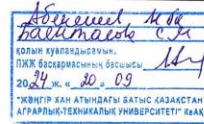 қолын куәландырамын.
ПЖЖ басқармасының басшысы
2024 ж. « 20 » 09
"ЖӘҢГІР ХАН АТЫНДАҒЫ БАТЫС ҚАЗАҚСТАН
АГРАРЛЫҚ-ТЕХНИКАЛЫҚ УНИВЕРСИТЕТІ" КеАҚ